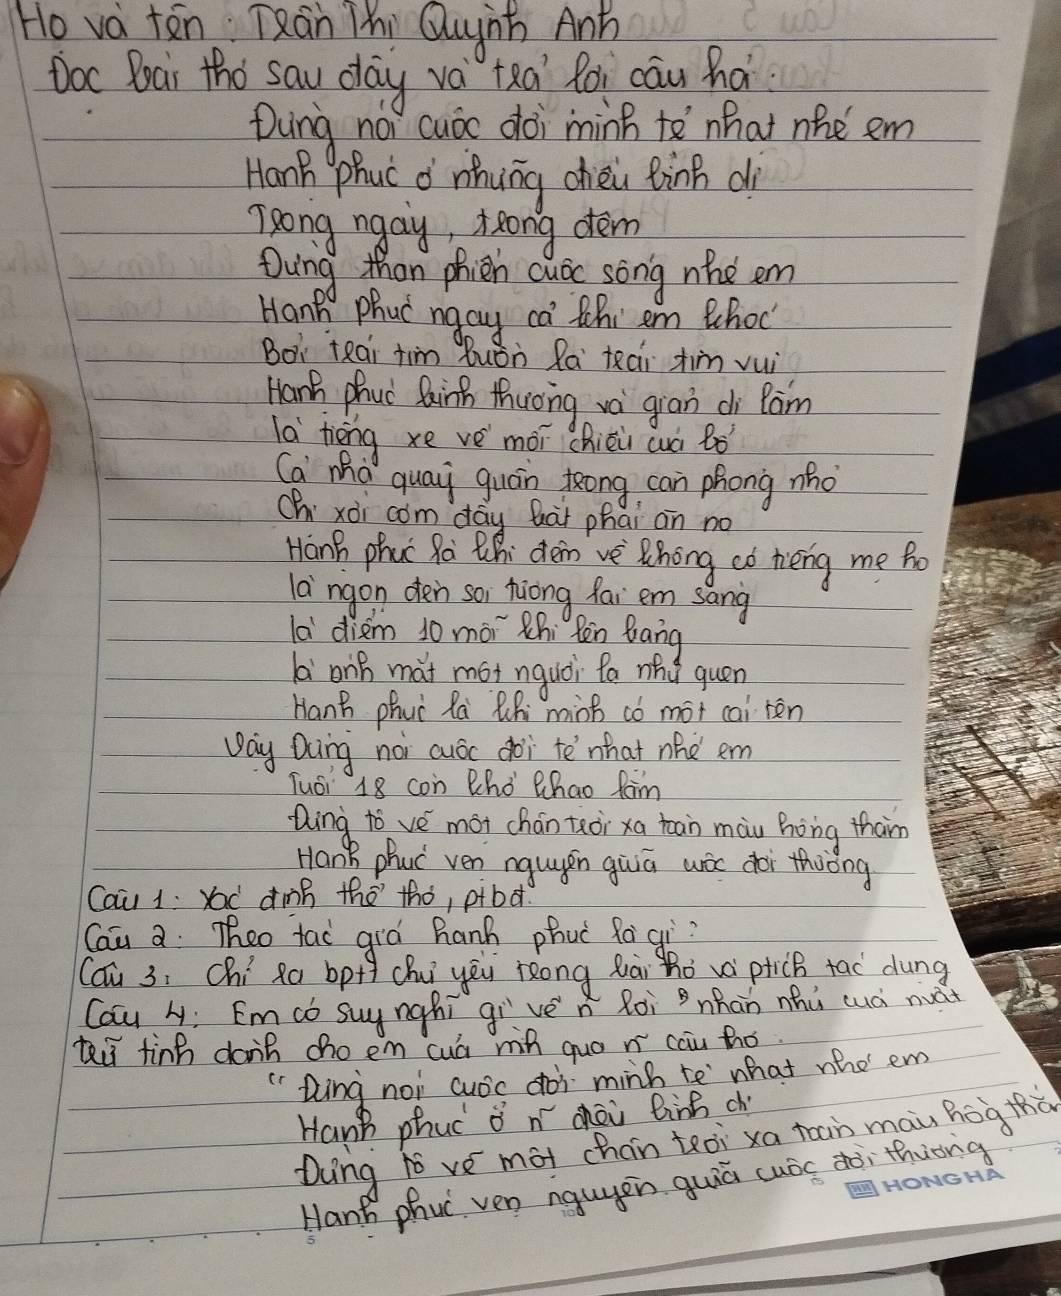 Họ và tên: Trần Thị Quỳnh Anh
Đọc bài thơ sau đây và trả lời câu hỏi.
Đừng nói cuộc đời mình tẻ nhạt nhé em
Hạnh phúc ở những điều bình dị
Trong ngày, trong đêm
Đừng than phiền cuộc sống nhé em
Hạnh phúc ngay cả khi em khóc
Bởi trái tim buồn là trái tim vui
Hạnh phúc bình thường và giản dị lắm
là tiếng xe về mỗi chiều của bố
Cả nhà quây quần trong căn phòng nhỏ
Chị xới cơm đầy bắt phải ăn no
Hạnh phúc là khi đêm về không có tiếng mẹ ho
là ngọn đèn soi tương lai em sáng
là điểm 10 mỗi khi lên bảng
là ánh mắt một người lạ như quen
Hạnh phúc là khi mình có một cái tên
Vậy Đừng nói cuộc đời tẻ nhạt nhé em
Tuổi 18 còn khờ khạo lắm
Đừng tô vẽ một chân trời xa toàn màu hồng thắm
Hạnh phúc vẹn nguyên giữa cuộc đời thường
Câu 1: Xác định thể thơ, ptbđ.
Câu 2: Theo tác giả hạnh phúc là gì?
Câu 3: Chỉ ra bptt chủ yếu trong bài thơ và ptích tác dụng
Câu 4: Em có suy nghĩ gì về n~ lời nhắn nhủ của nvật
trữ tình dành cho em của mình qua n~ câu thơ.
"Đừng nói cuộc đời mình tẻ nhạt nhé em
Hạnh phúc ở n~ điều bình dị
Đừng tô vẽ một chân trời xa toàn màu hồg thắm
Hạnh phúc vẹn nguyên giữa cuộc đời thường
HH HONG HA
5
10
15